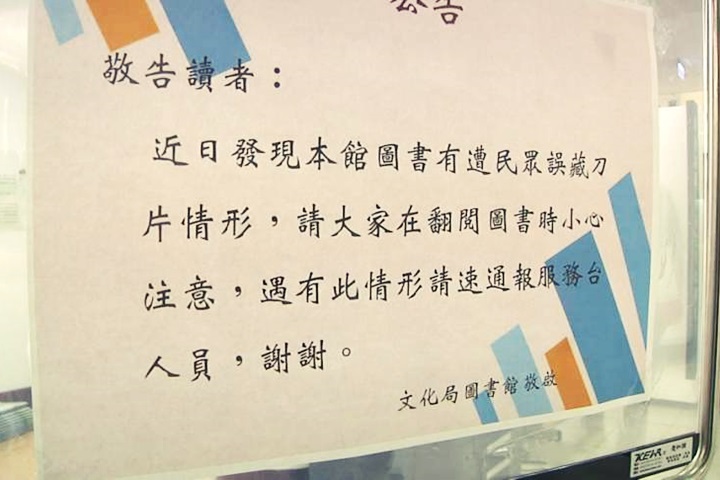 公告
敬告讀者：
近日發現本館圖書有遭民眾誤藏刀
片情形，請大家在翻閱圖書時小心
注意，遇有此情形請速通報服務台
人員，謝謝。
文化局圖書館敬啟